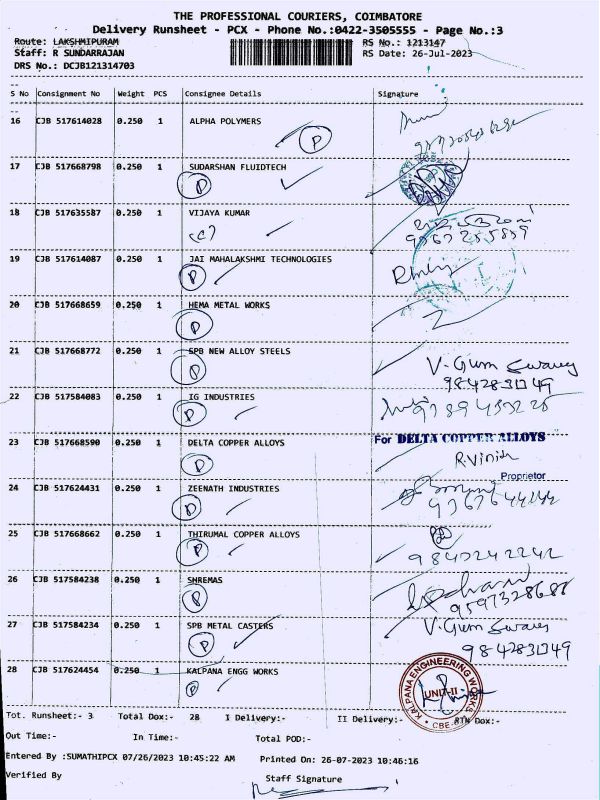 THE PROFESSIONAL COURIERS, COIMBATORE
Delivery Runsheet - PCX - Phone No.:0422-3505555 - Page No.:3
Route: LAKSHMIPURAM RS No.: 1213147
Staff: R SUNDARRAJAN RS Date: 26-Jul-2023
DRS No.: DCJB121314703
S No Consignment No Weight PCS Consignee Details Signature
16 CJB 517614028 0.250 1 ALPHA POLYMERS
P
17 CJB 517668798 0.250 1 SUDARSHAN FLUIDTECH
P
18 CJB 517635587 0.250 1 VIJAYA KUMAR
(c)
19 CJB 517614087 0.250 1 JAI MAHALAKSHMI TECHNOLOGIES
P
20 CJB 517668659 0.250 1 HEMA METAL WORKS
P
21 CJB 517668772 0.250 1 SPB NEW ALLOY STEELS
P V. Gum Swavey
9842831749
22 CJB 517584083 0.250 1 IG INDUSTRIES
P
23 CJB 517668590 0.250 1 DELTA COPPER ALLOYS For DELTA COPPER ALLOYS
P R.Vinish
Proprietor
24 CJB 517624431 0.250 1 ZEENATH INDUSTRIES
P
25 CJB 517668662 0.250 1 THIRUMAL COPPER ALLOYS
P 9843242242
26 CJB 517584238 0.250 1 SHREMAS
P
27 CJB 517584234 0.250 1 SPB METAL CASTERS V. Gum Swavey
P 9842831749
28 CJB 517624454 0.250 1 KALPANA ENGG WORKS KALPANA ENGINEERING WORKS
P UNIT-II
CBE
Tot. Runsheet:- 3 Total Dox:- 28 I Delivery:- II Delivery:- RTN Dox:-
Out Time:- In Time:- Total POD:-
Entered By :SUMATHIPCX 07/26/2023 10:45:22 AM Printed On: 26-07-2023 10:46:16
Verified By Staff Signature